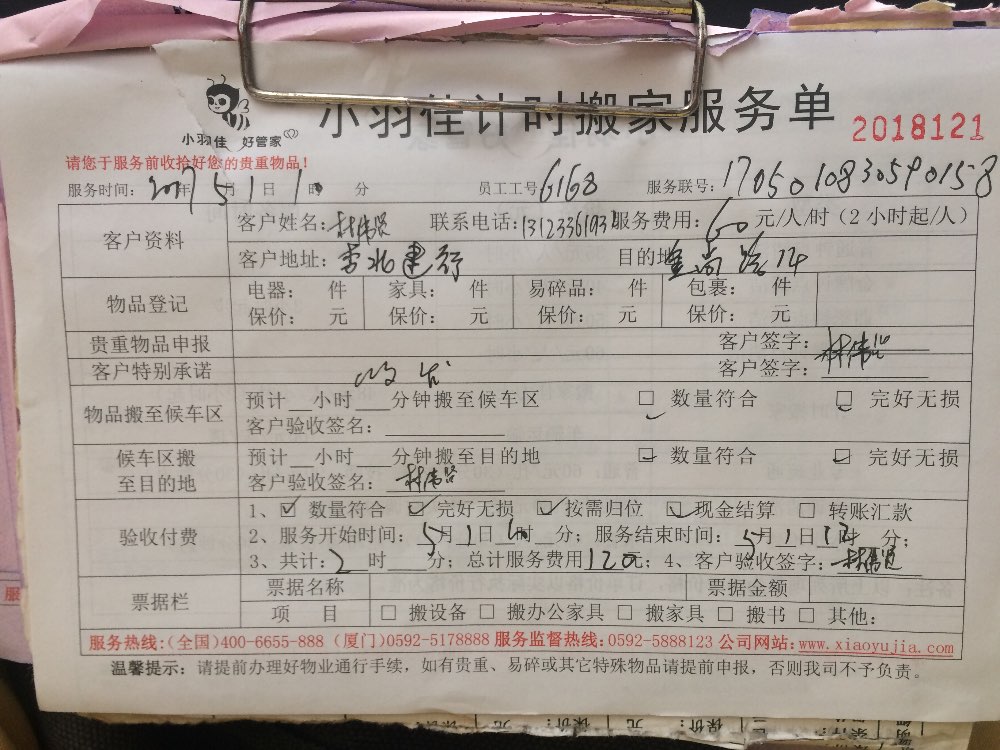 小羽佳计时搬家服务单
小羽佳 好管家
2018121
请您于服务前收拾好您的贵重物品！
服务时间：2017年5月1日10时 分 员工工号6168 服务联号：1705010830590158
客户资料 客户姓名：林伟贤 联系电话：13123361093 服务费用：60元/人/时（2小时起/人）
客户地址：李北建行 目的地
物品登记 电器： 件 家具： 件 易碎品： 件 包裹： 件
保价： 元 保价： 元 保价： 元 保价： 元
贵重物品申报 客户签字：林伟贤
客户特别承诺 客户签字：
物品搬至候车区 预计__小时___分钟搬至候车区 □ 数量符合 □ 完好无损
客户验收签名：
候车区搬至目的地 预计__小时___分钟搬至目的地 ☑ 数量符合 ☑ 完好无损
客户验收签名：林伟贤
验收付费 1、☑ 数量符合 ☑ 完好无损 ☑ 按需归位 ☑ 现金结算 □ 转账汇款
2、服务开始时间：5月1日10时__分；服务结束时间：5月1日12时 分；
3、共计：2时___分；总计服务费用120元；4、客户验收签字：林伟贤
票据栏 票据名称 票据金额
项 目 □ 搬设备 □ 搬办公家具 □ 搬家具 □ 搬书 □ 其他：
服务热线：(全国)400-6655-888 (厦门)0592-5178888 服务监督热线：0592-5888123 公司网站：www.xiaoyujia.com
温馨提示：请提前办理好物业通行手续，如有贵重、易碎或其它特殊物品请提前申报，否则我司不予负责。